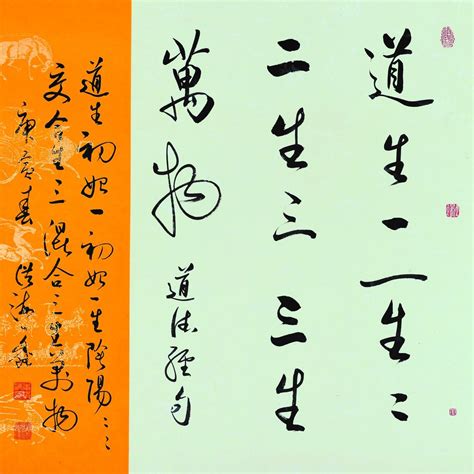 道生一一生二
二生三三生
萬物
道德經句
道生初始一初始一生陰陽二二
交合生三混合三生萬物
庚寅春
洪海